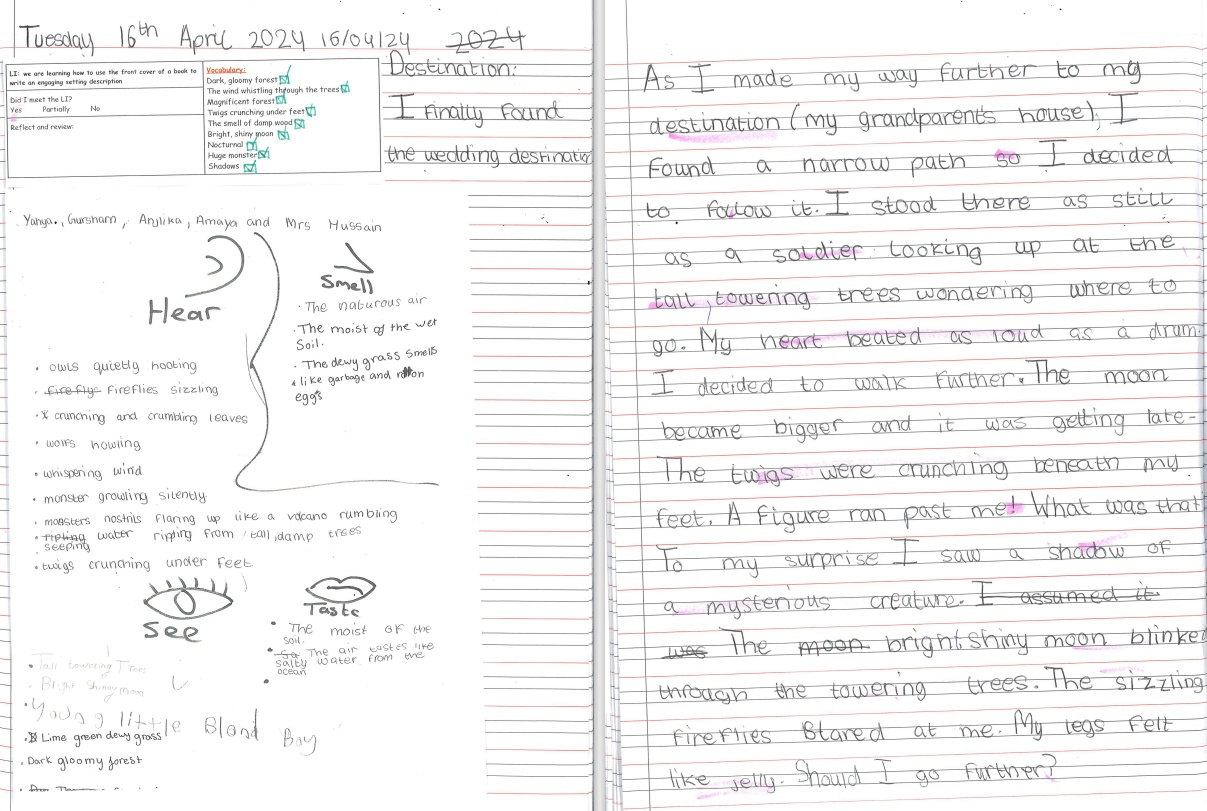 Tuesday 16th April 2024 16/04/24 2024
LI: we are learning how to use the front cover of a book to
write an engaging setting description
Did I meet the LI?
Yes Partially No
Reflect and review:
Vocabulary:
Dark, gloomy forest
The wind whistling through the trees
Magnificent forest
Twigs crunching under feet
The smell of damp wood
Bright, shiny moon
Nocturnal
Huge monster
Shadows
Destination:
I finally found
the wedding destinatio
Yahya., Gursharn, Anjlika, Amaya and Mrs Hussain
Hear
• owls quietly hooting
• firefly fireflies sizzling
• crunching and crumbling leaves
• wolfs howling
• whispering wind
• monster growling silently
• monsters nostrils flaring up like a volcano rumbling
• ripling water ripling from tall, damp trees
seeping
• twigs crunching under feet.
Smell
• The naturous air
• The moist of the wet
Soil.
• The dewy grass smells
like garbage and rotton
eggs
See
• Tall towering Trees
• Bright Shinny moon
• Young little Blond Boy
• Lime green dewy grass
• Dark gloomy forest
Taste
• The moist of the
soil.
• The air tastes like
salty water from the
ocean
As I made my way further to my
destination (my grandparents house), I
found a narrow path so I decided
to follow it. I stood there as still
as a soldier looking up at the
tall, towering trees wondering where to
go. My heart beated as loud as a drum.
I decided to walk further. The moon
became bigger and it was getting late-
The twigs were crunching beneath my
feet. A figure ran past me! What was that
To my surprise I saw a shadow of
a mysterious creature. I assumed it
was The moon bright, shiny moon blinked
through the towering trees. The sizzling
fireflies stared at me. My legs felt
like jelly. Should I go further?